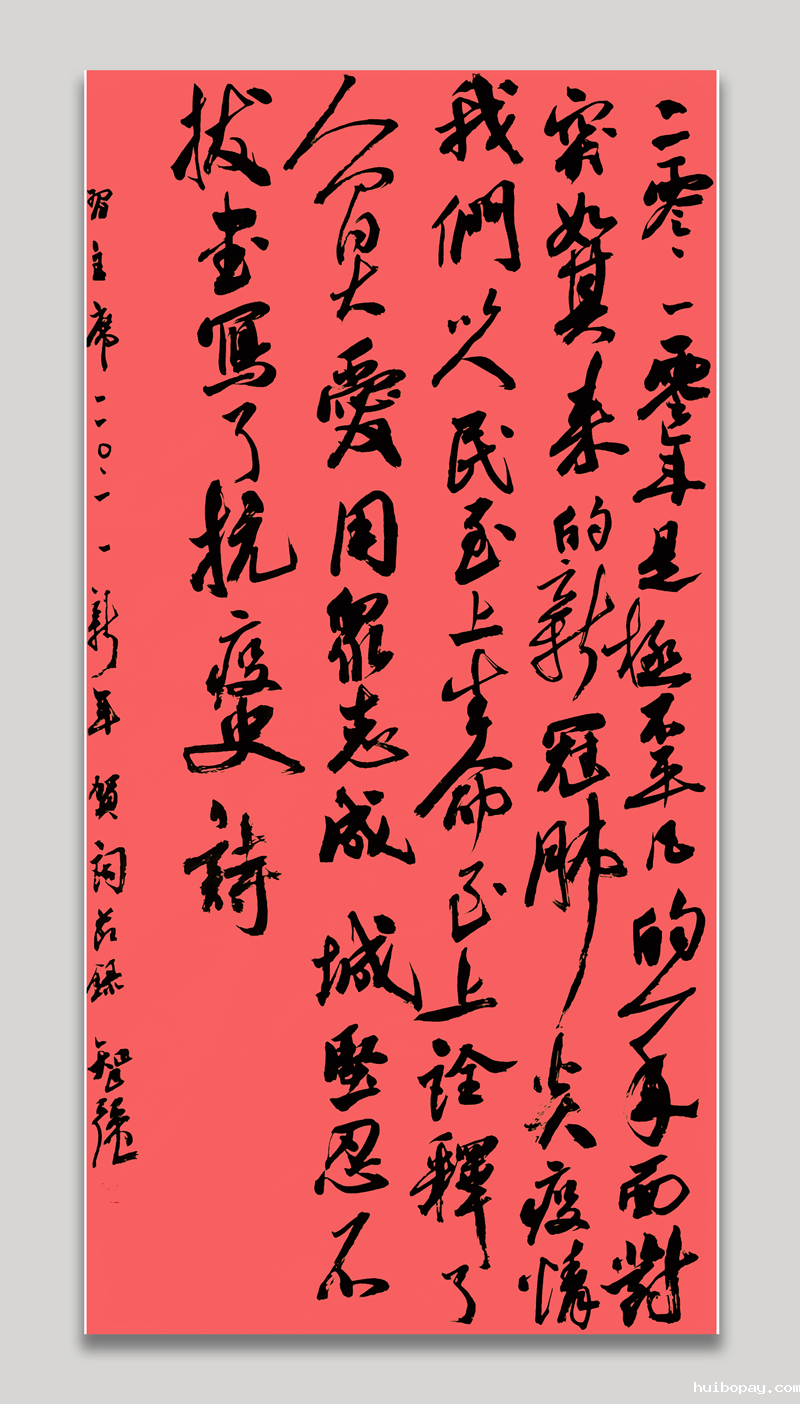 二零二零年是極不平凡的一年面對
突如其来的新冠肺炎疫情
我們以人民至上生命至上詮釋了
人間大愛用眾志成城堅忍不
拔書寫了抗疫史詩
習主席二〇二一新年賀詞节錄 智強
huibopay.com